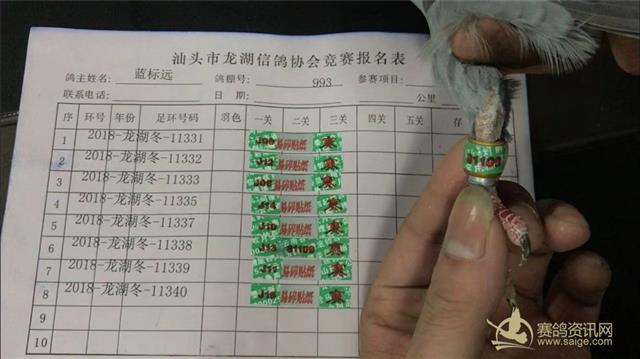 汕头市龙湖信鸽协会竞赛报名表
鸽主姓名: 蓝标远 鸽棚号: 993 参赛项目:
联系电话: 日期: 公里
序 环号 年份 足环号码 羽色 一关 二关 三关 四关 五关 存
1 2018-龙湖冬-11331 易碎贴纸 寒
2 2018-龙湖冬-11332 J12 易碎贴纸 寒
3 2018-龙湖冬-11333 易碎贴纸 寒
4 2018-龙湖冬-11335 J14 易碎贴纸 寒
5 2018-龙湖冬-11337 J10 易碎贴纸 寒
6 2018-龙湖冬-11338 J13 61109 寒
7 2018-龙湖冬-11339 J11 易碎贴纸 寒
8 2018-龙湖冬-11340 易碎贴纸 寒
9
10
赛鸽资讯网
www.saige.com